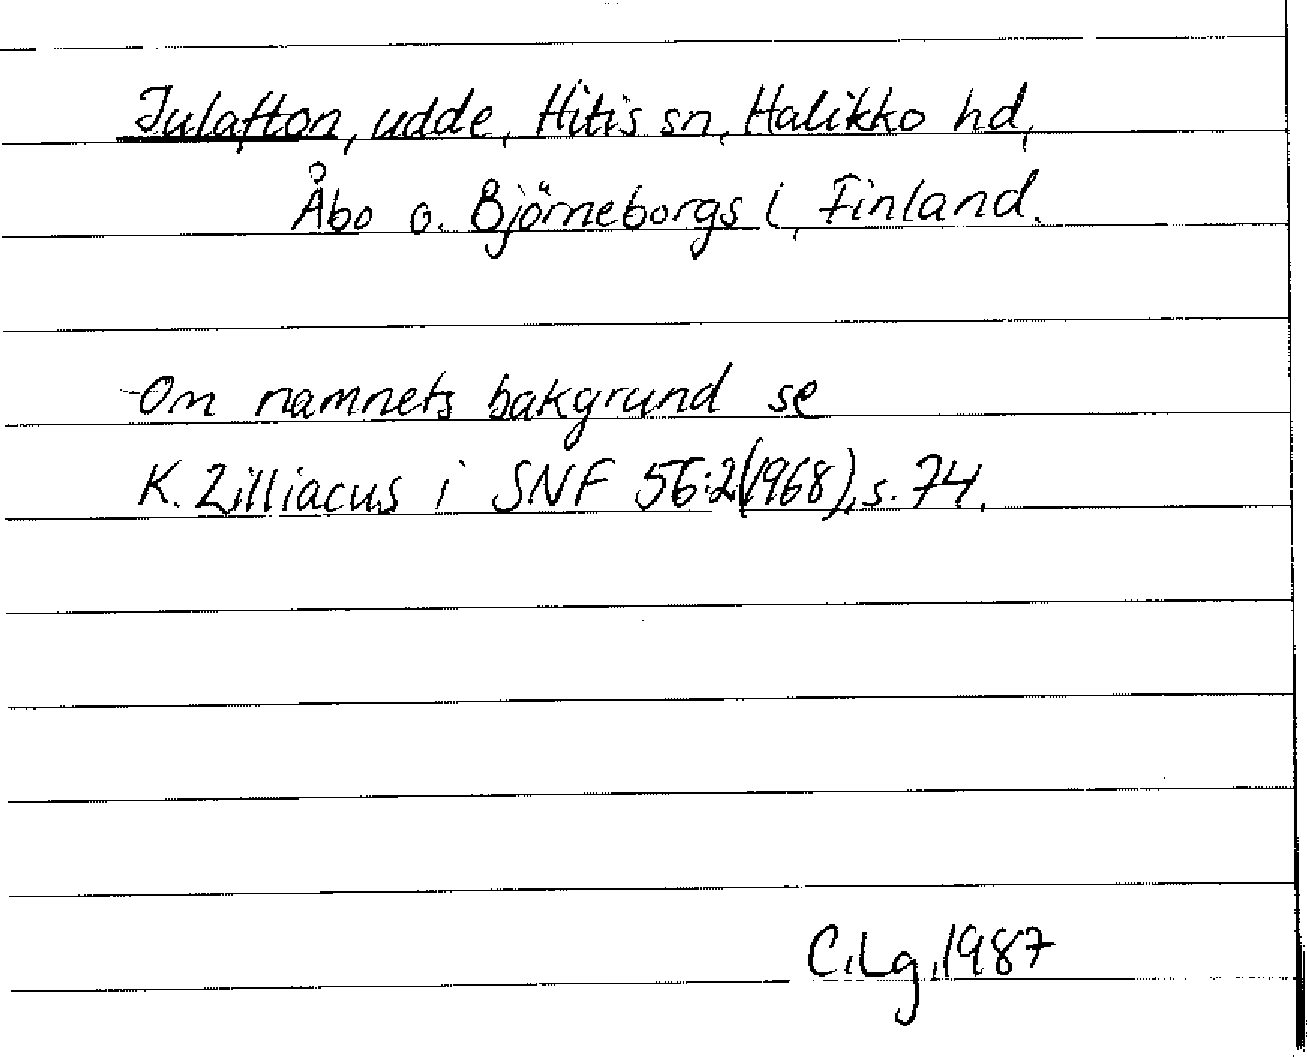 Julafton, udde, Hitis sn, Halikko hd,
Åbo o. Björneborgs l, Finland.
Om namnets bakgrund se
K. Zilliacus i SNF 56:2(1968), s. 74.
C.Lg, 1987